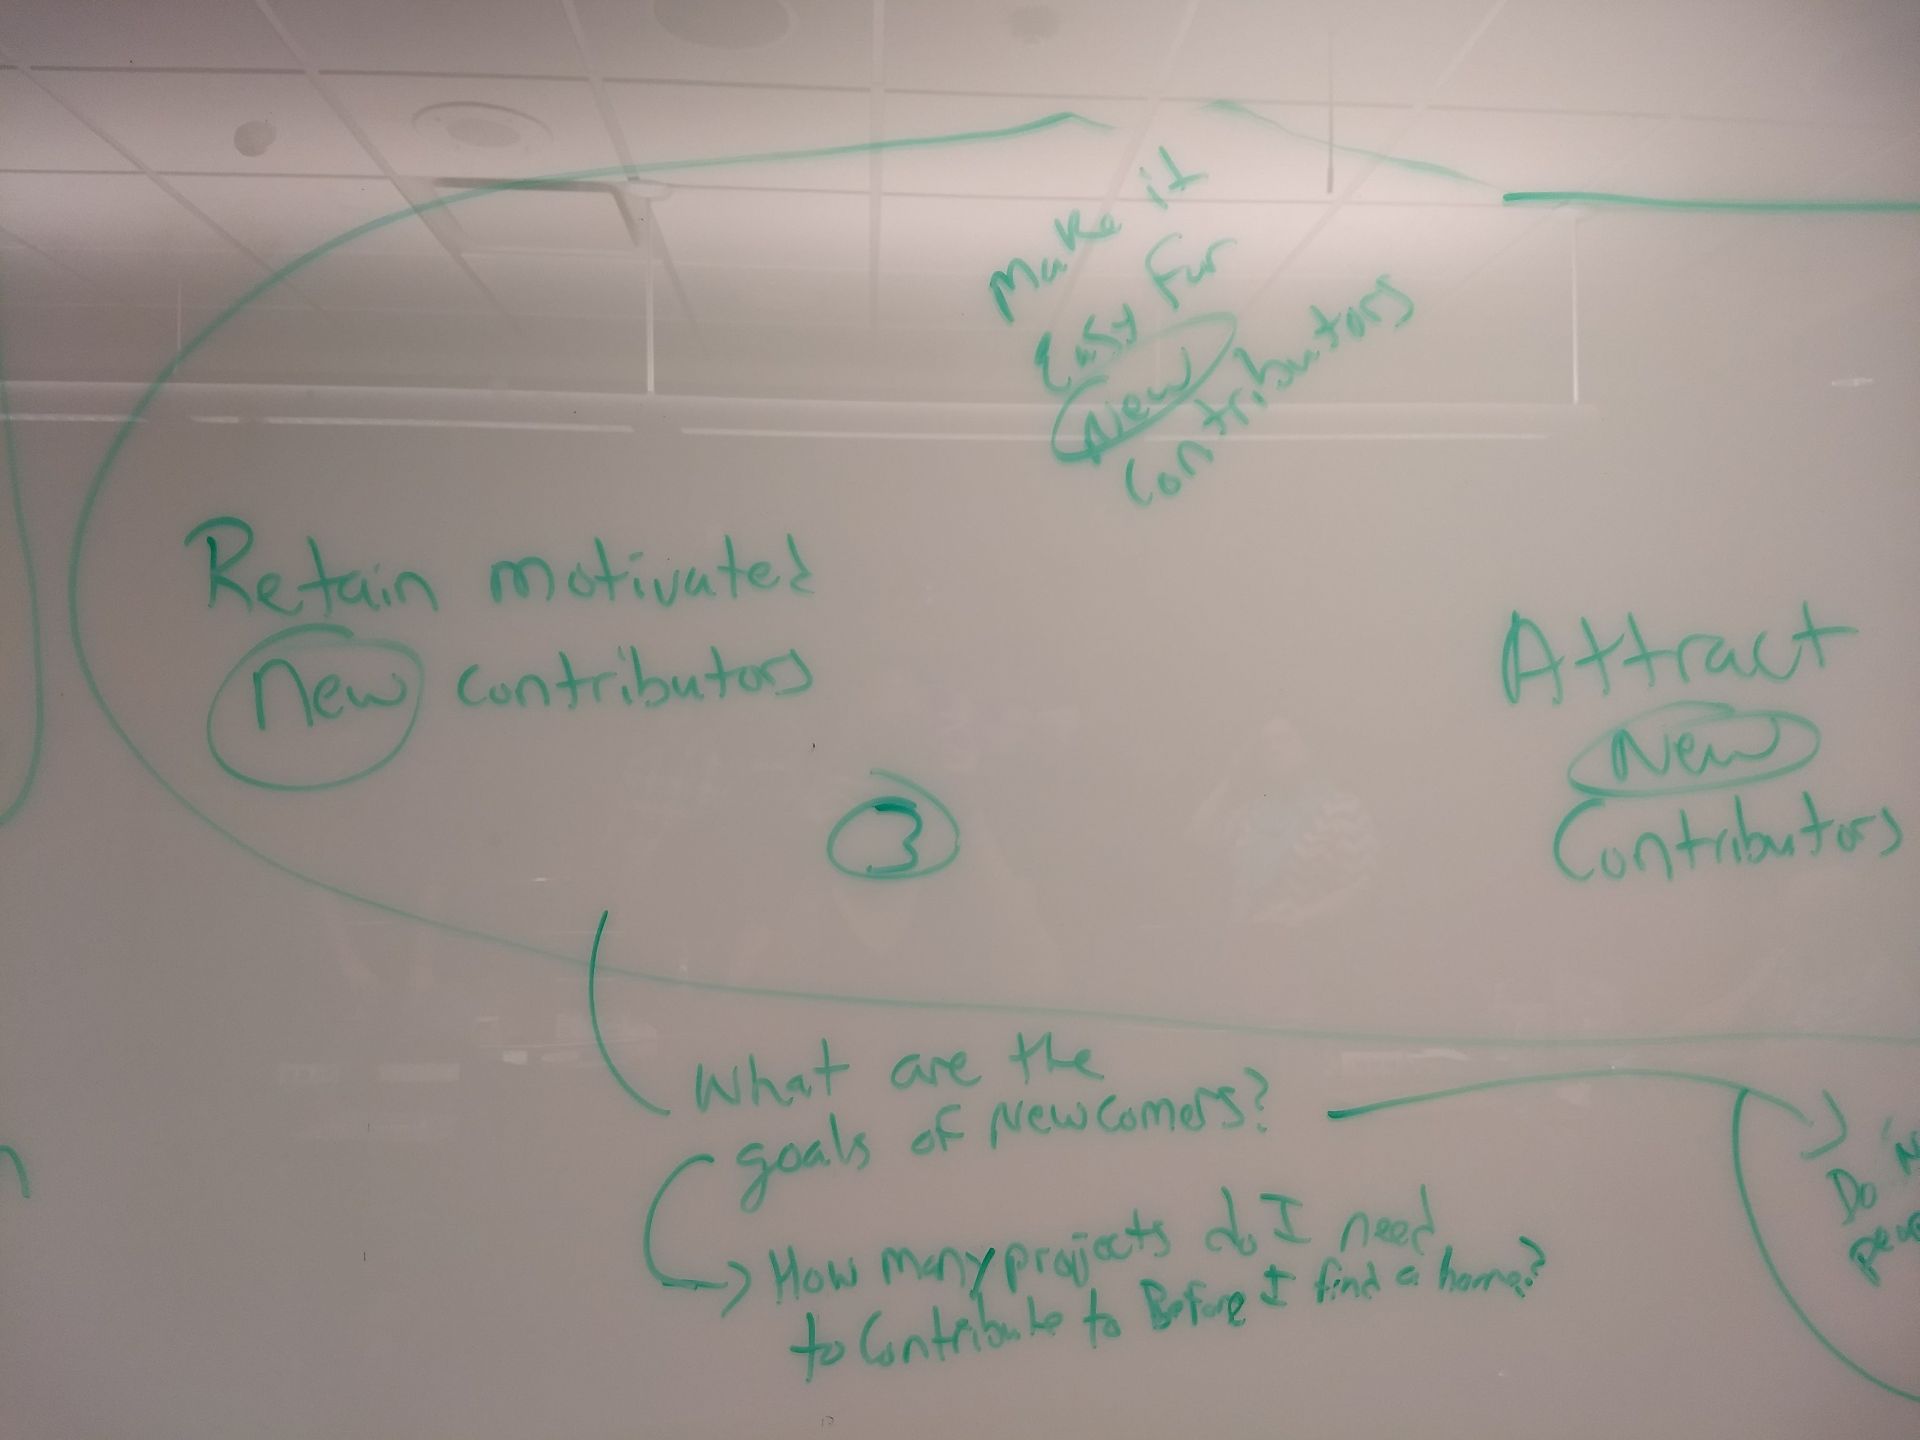 Make it
Easy for
New
Contributors
Retain motivated
New contributors
Attract
New
Contributors
3
What are the
goals of Newcomers?
How many projects do I need
to Contribute to Before I find a home?
Do